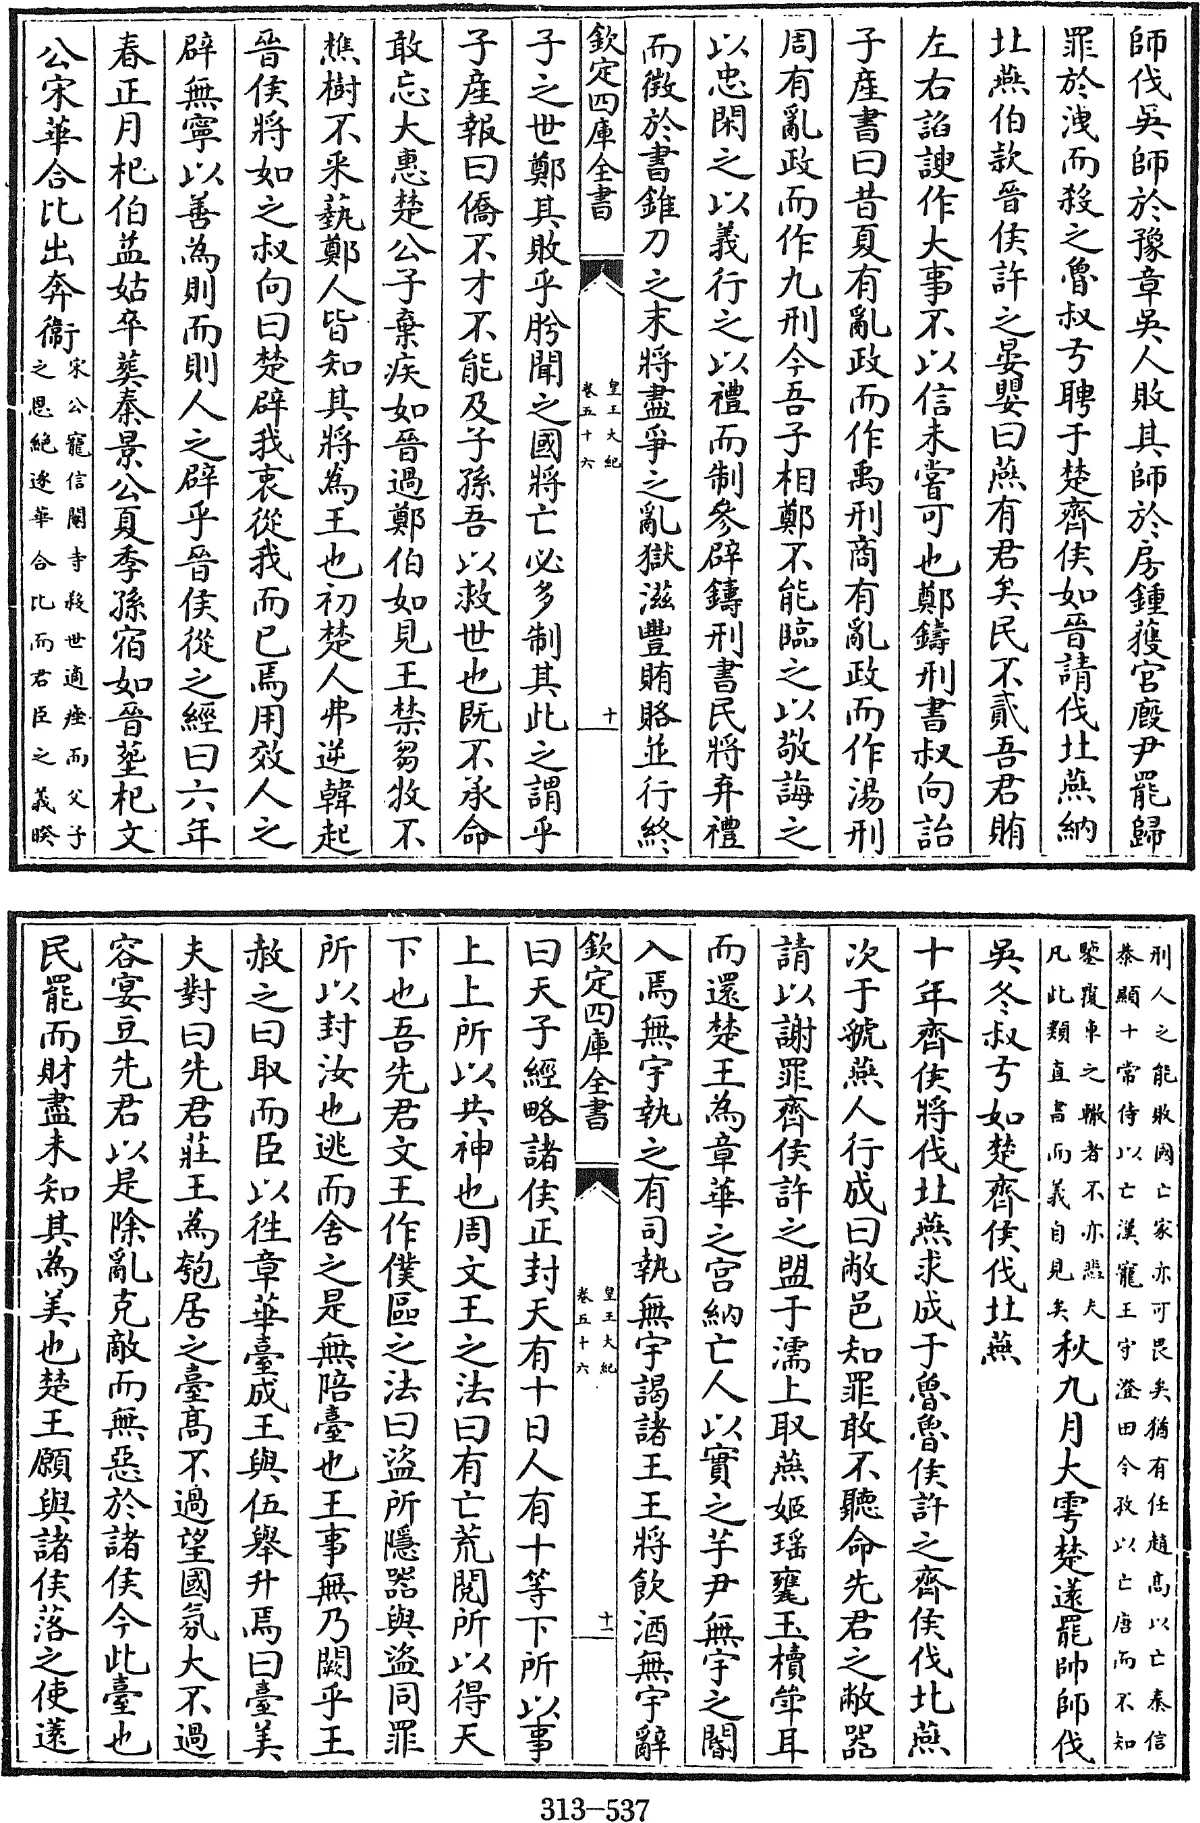 師伐吳師於豫章吳人敗其師於房鍾獲宮廐尹罷歸
罪於洩而殺之魯叔弓聘于楚齊侯如晉請伐北燕納
北燕伯款晉侯許之晏嬰曰燕有君矣民不貳吾君賄
左右諂諛作大事不以信未嘗可也鄭鑄刑書叔向詒
子產書曰昔夏有亂政而作禹刑商有亂政而作湯刑
周有亂政而作九刑今吾子相鄭不能臨之以敬誨之
以忠閑之以義行之以禮而制參辟鑄刑書民將弃禮
而徴於書錐刀之末將盡爭之亂獄滋豐賄賂並行終
欽定四庫全書
皇王大紀
卷五十六
十
子之世鄭其敗乎肸聞之國將亡必多制其此之謂乎
子產報曰僑不才不能及子孫吾以救世也既不承命
敢忘大惠楚公子棄疾如晉過鄭伯如見王禁芻牧不
樵樹不采蓺鄭人皆知其將為王也初楚人弗逆韓起
晉侯將如之叔向曰楚辟我衷從我而已焉用效人之
辟無寧以善為則而則人之辟乎晉侯從之經曰六年
春正月杞伯益姑卒葬秦景公夏季孫宿如晉塟杞文
公宋華合比出奔衞
宋公寵信閹寺殺世適痤而父子
之恩絶逐華合比而君臣之義暌
刑人之能敗國亡家亦可畏矣猶有任趙高以亡秦信
恭顯十常侍以亡漢寵王守澄田令孜以亡唐而不知
鑒覆車之轍者不亦悲夫
凡此類直書而義自見矣
秋九月大雩楚薳罷帥師伐
吳冬叔弓如楚齊侯伐北燕
十年齊侯將伐北燕求成于魯魯侯許之齊侯伐北燕
次于虢燕人行成曰敝邑知罪敢不聽命先君之敝器
請以謝罪齊侯許之盟于濡上取燕姬瑤罋玉櫝斝耳
而還楚王為章華之宮納亡人以實之芋尹無宇之閽
入焉無宇執之有司執無宇謁諸王王將飲酒無宇辭
欽定四庫全書
皇王大紀
卷五十六
十一
曰天子經略諸侯正封天有十日人有十等下所以事
上上所以共神也周文王之法曰有亡荒閱所以得天
下也吾先君文王作僕區之法曰盜所隱器與盜同罪
所以封汝也逃而舍之是無陪臺也王事無乃闕乎王
赦之曰取而臣以徃章華臺成王與伍舉升焉曰臺美
夫對曰先君莊王為匏居之臺髙不過望國氛大不過
容宴豆先君以是除亂克敵而無惡於諸侯今此臺也
民罷而財盡未知其為美也楚王願與諸侯落之使薳
313-537